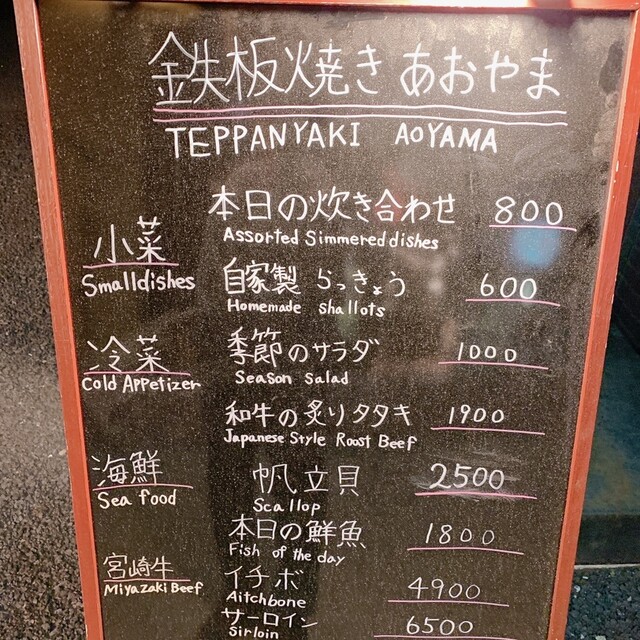 鉄板焼き あおやま
TEPPANYAKI AOYAMA
小菜
Smalldishes
本日の炊き合わせ 800
Assorted Simmered dishes
自家製 らっきょう 600
Homemade shallots
冷菜
Cold Appetizer
季節のサラダ 1000
Season salad
和牛の炙りタタキ 1900
Japanese Style Roast Beef
海鮮
Sea food
帆立貝 2500
Scallop
本日の鮮魚 1800
Fish of the day
宮崎牛
Miyazaki Beef
イチボ 4900
Aitchbone
サーロイン 6500
Sirloin